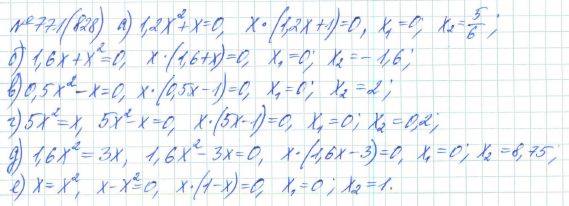 №771(828) а) 1,2x²+x=0, x·(1,2x+1)=0, x₁=0; x₂=5/6;
б) 1,6x+x²=0, x·(1,6+x)=0, x₁=0; x₂=-1,6;
в) 0,5x²-x=0, x·(0,5x-1)=0, x₁=0; x₂=2;
г) 5x²=x, 5x²-x=0, x·(5x-1)=0, x₁=0; x₂=0,2;
д) 1,6x²=3x, 1,6x²-3x=0, x·(1,6x-3)=0, x₁=0; x₂=8,75;
е) x=x², x-x²=0, x·(1-x)=0, x₁=0; x₂=1.